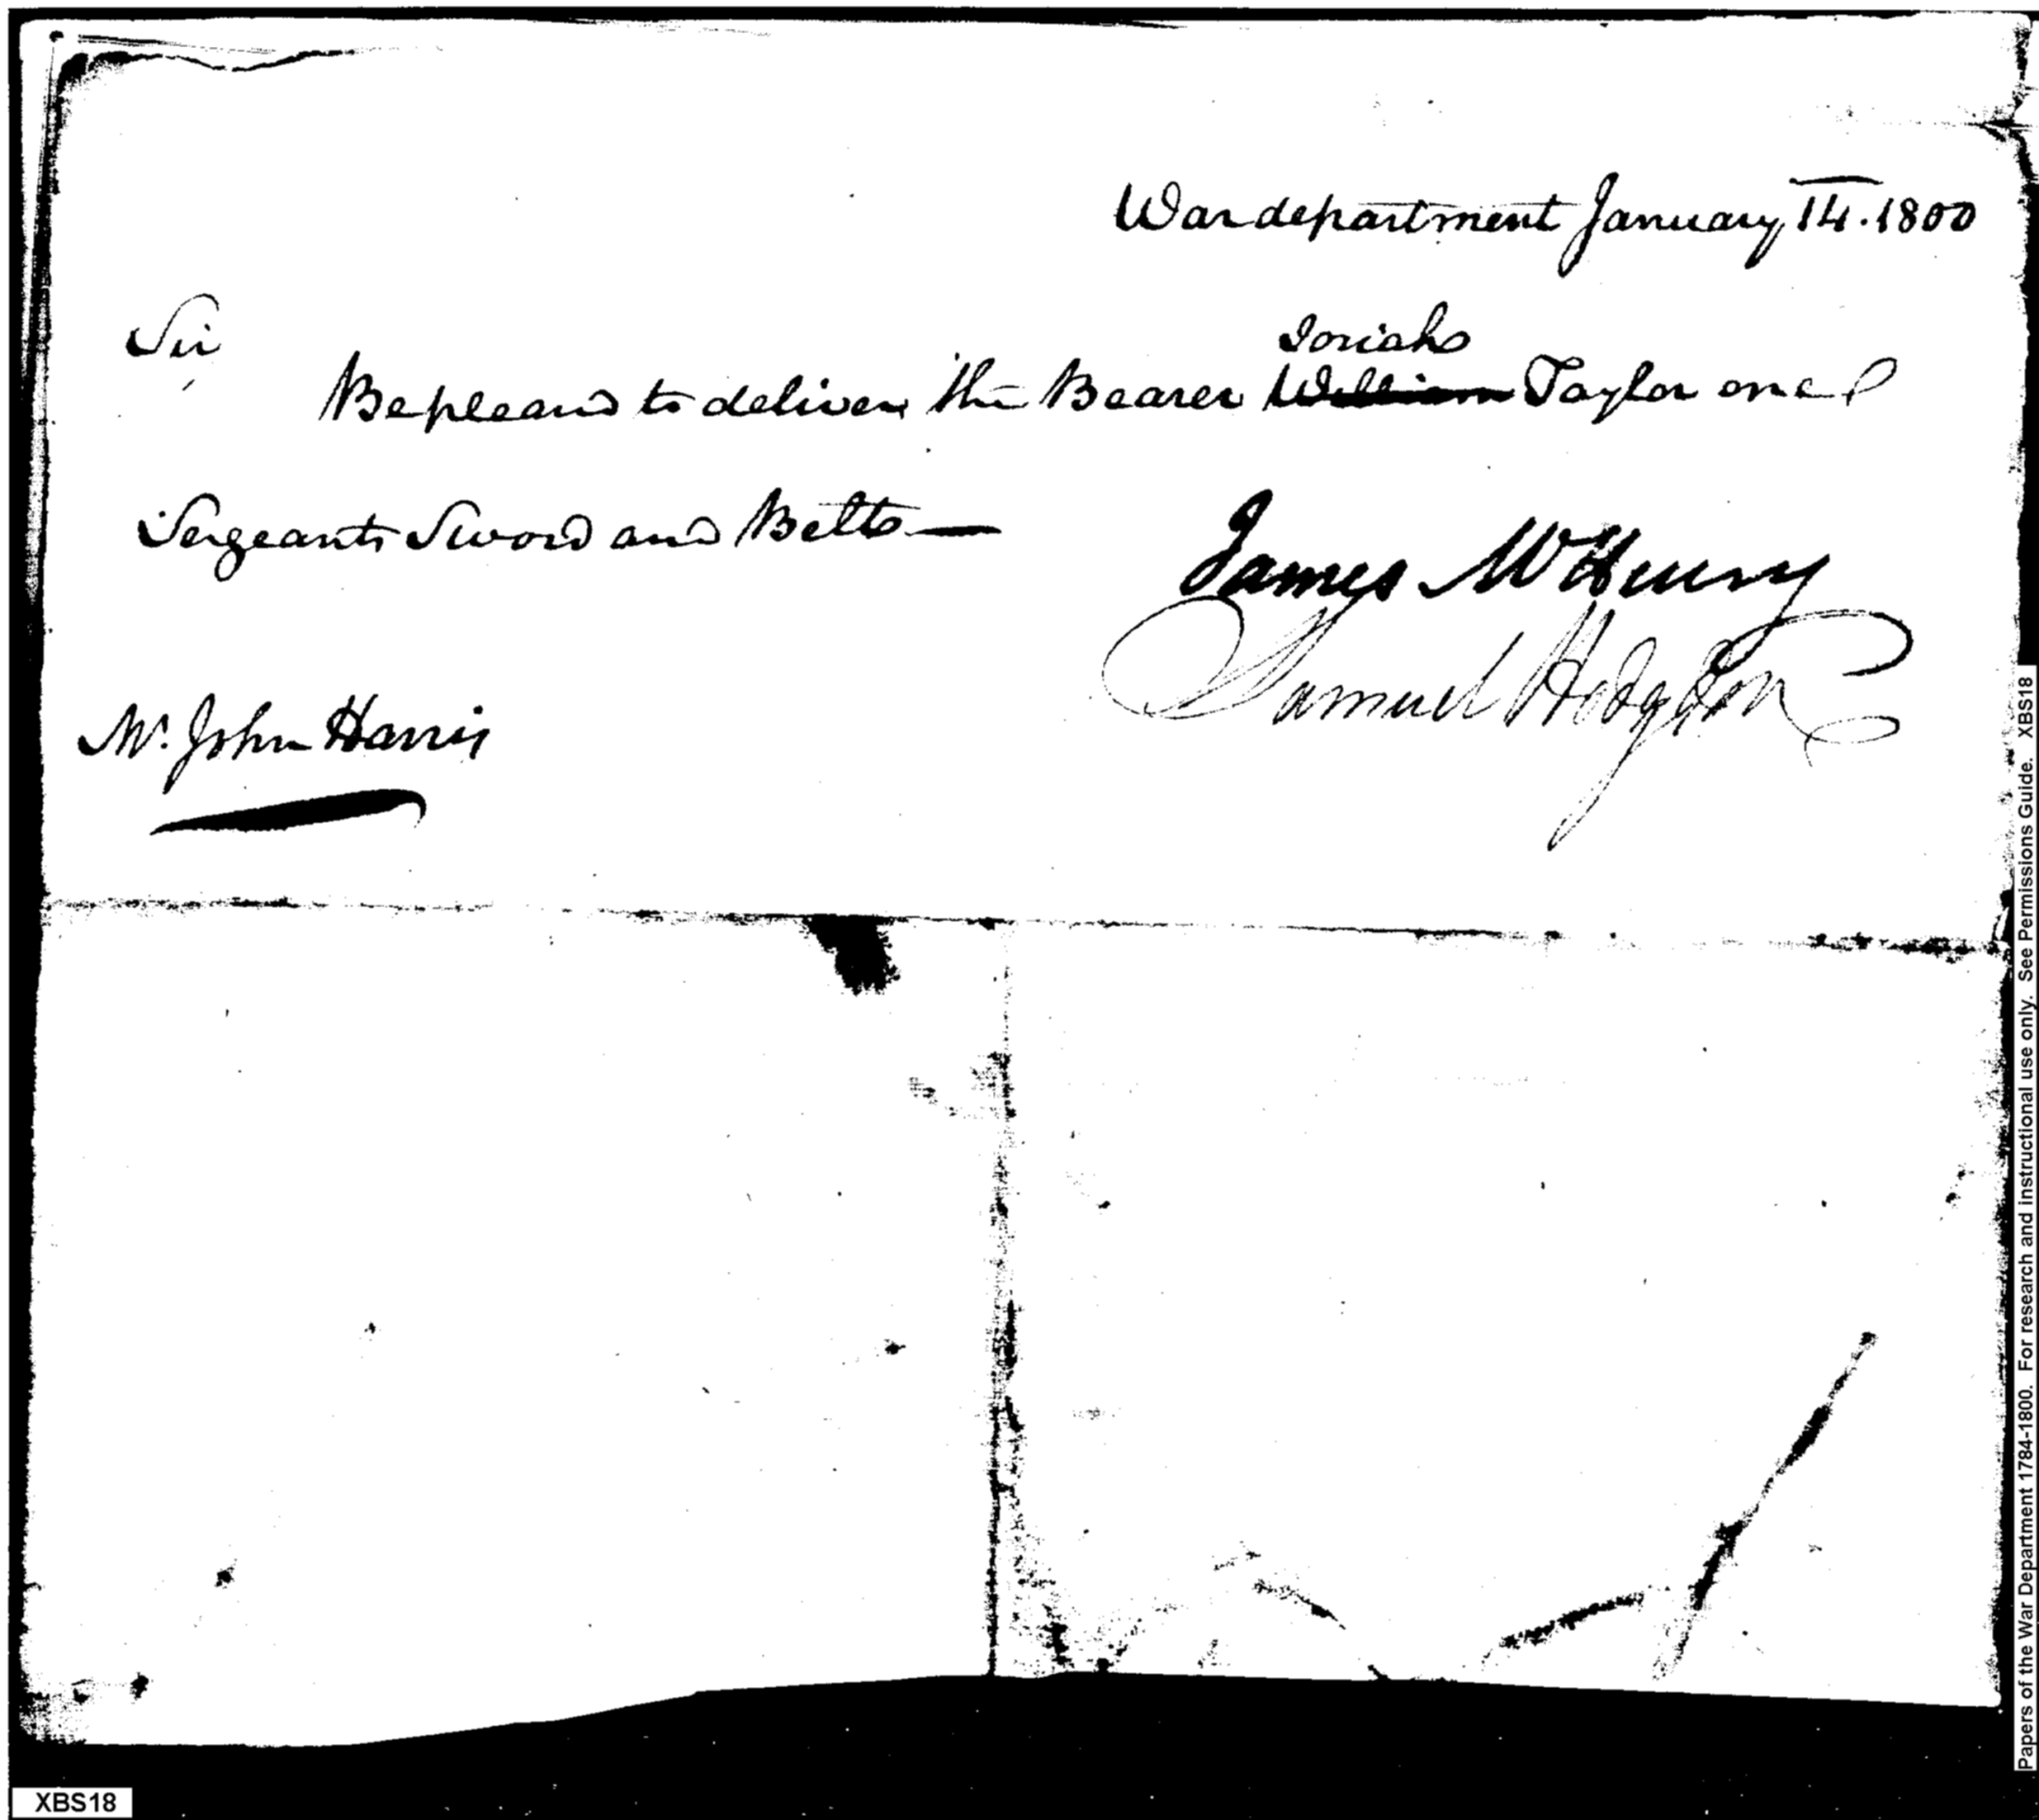 War department January 14. 1800
Sir
Josiah
Be pleased to deliver the Bearer William Taylor one
Sergeants Sword and Belt —
James McHenry
Samuel Hodgdon
Mr. John Harris
Papers of the War Department 1784-1800. For research and instructional use only. See Permissions Guide. XBS18
XBS18